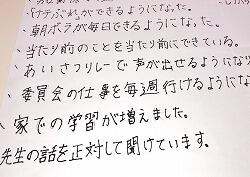 「ナテふれ」ができるようになった。
・朝ボラが毎日できるようになった。
・当たり前のことを当たり前にできている。
・あいさつリレーで声が出せるようになり
・委員会の仕事を毎週行けるようになり
・家での学習が増えました。
先生の話を正対して聞けています。